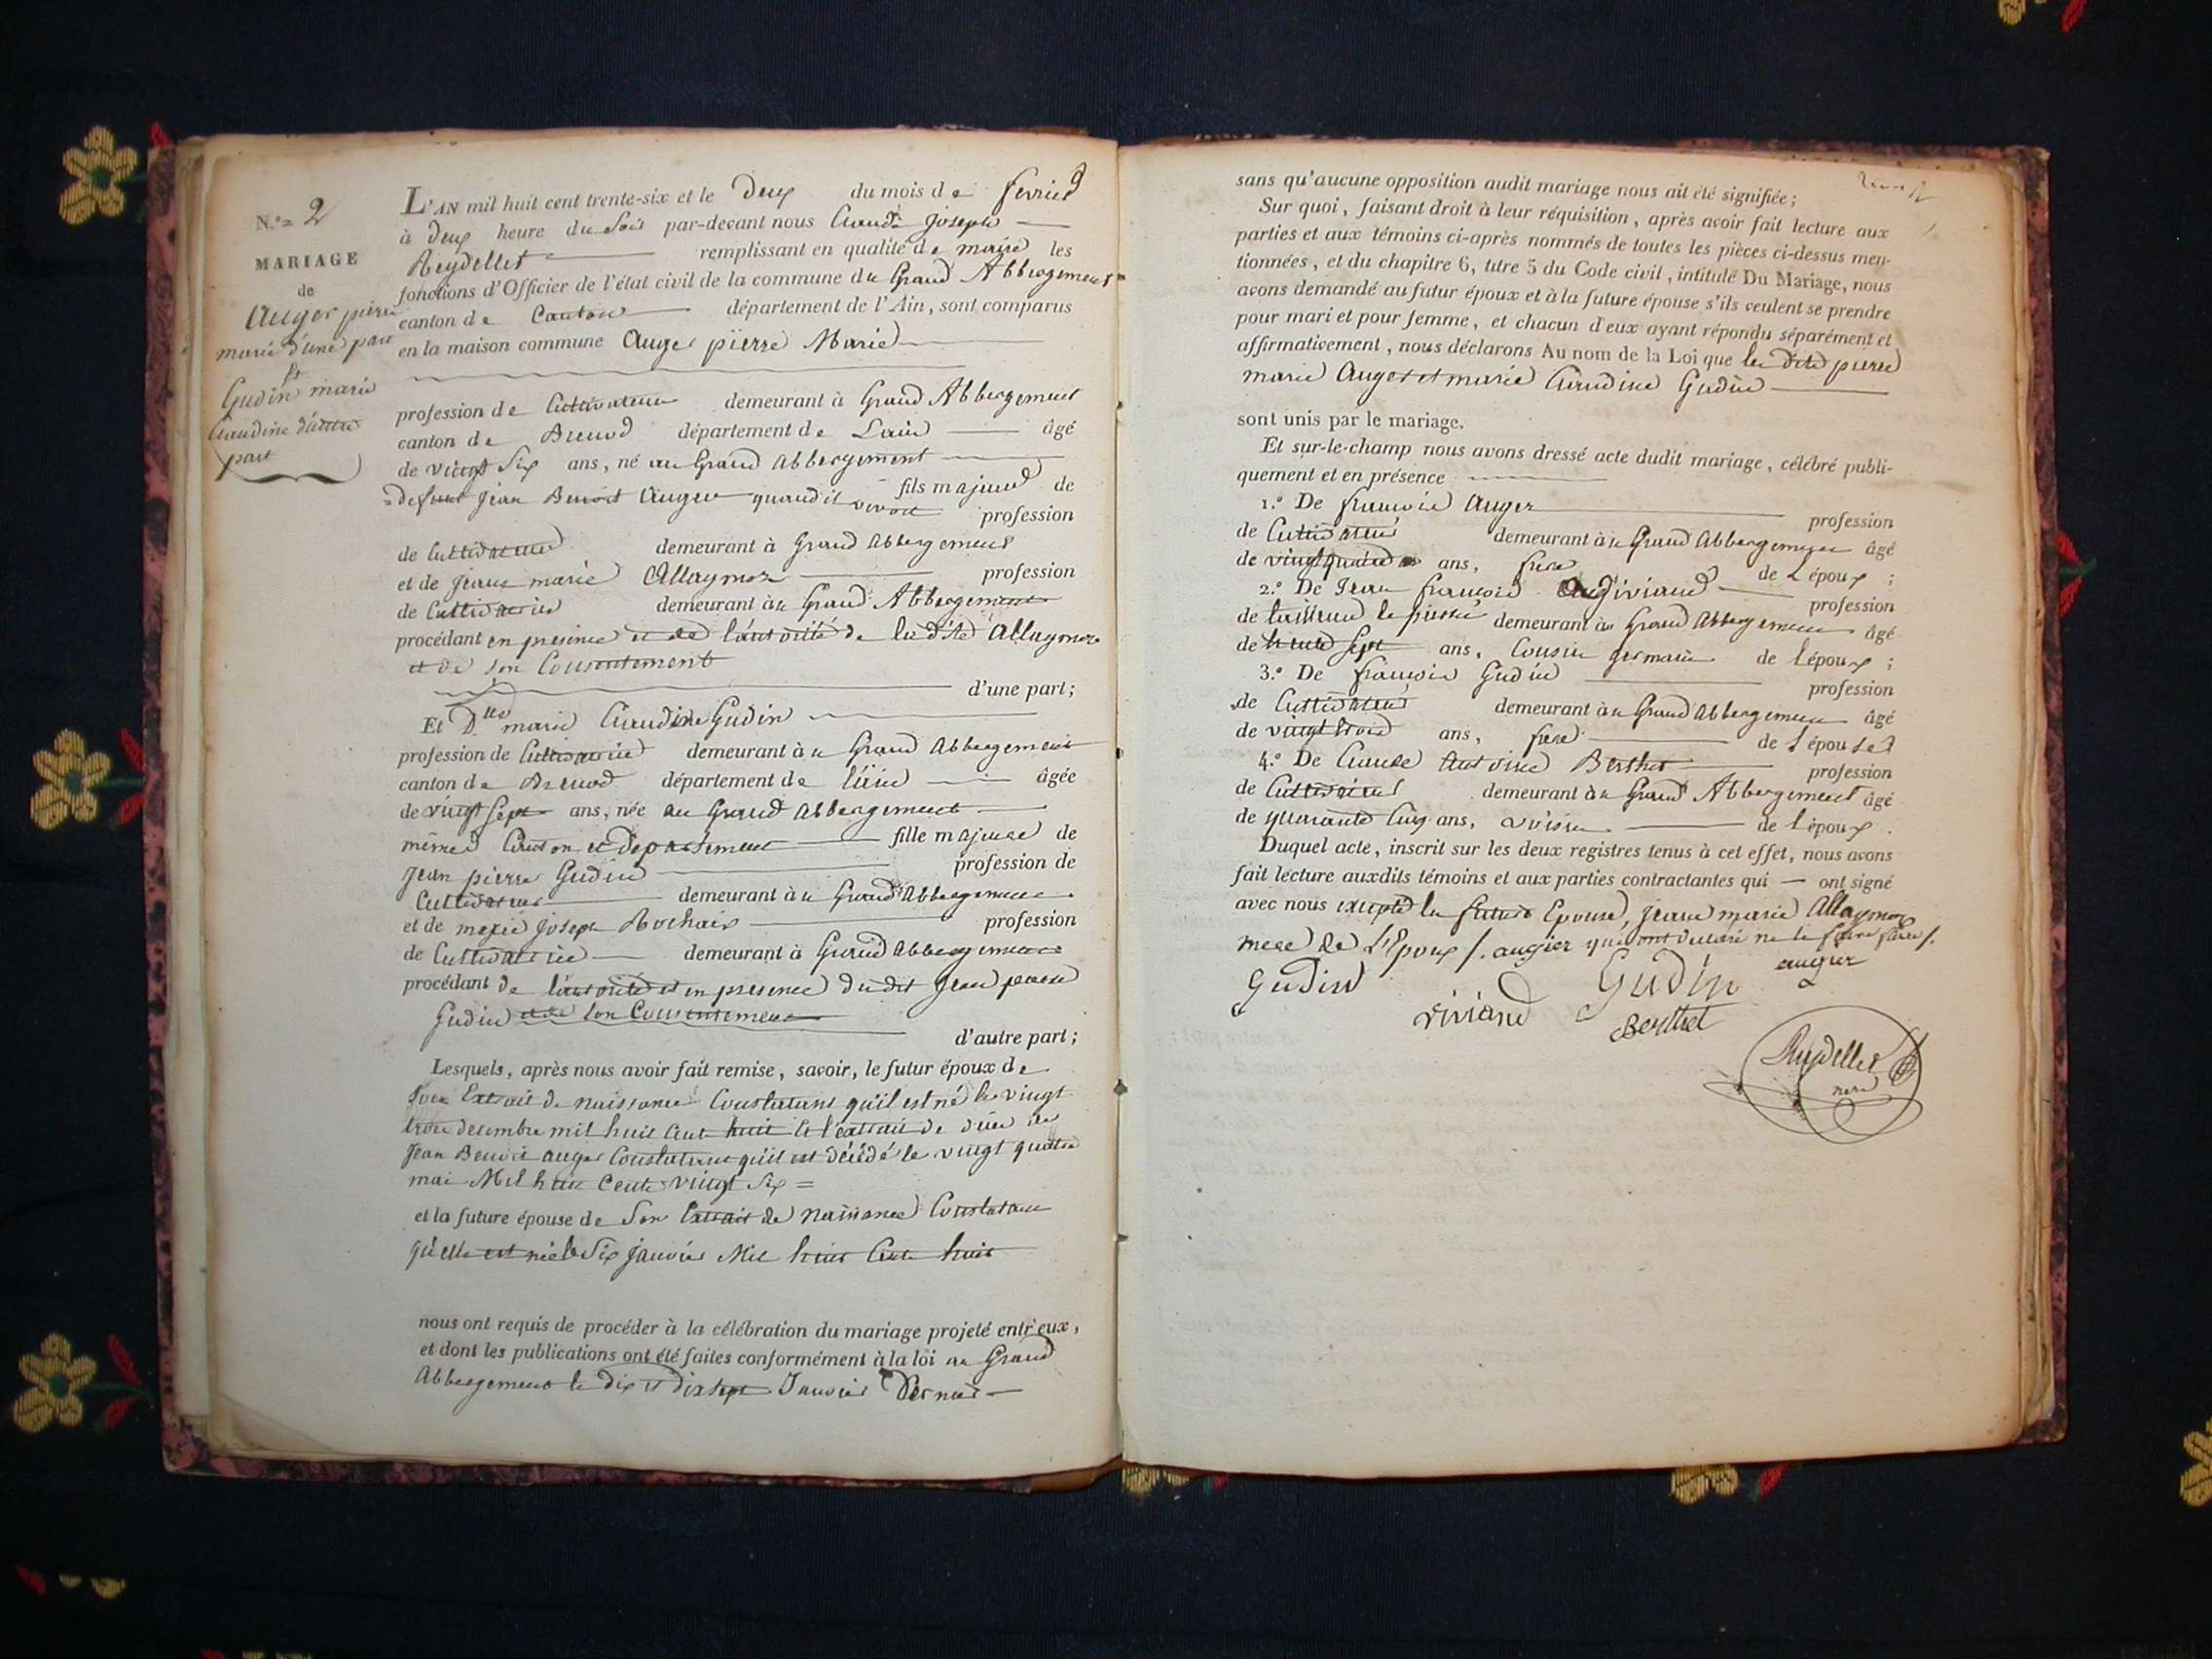 N.o = 2
MARIAGE
de
Auger pierre
marie d'une part
et
Gudin marie
Claudine d'autre
part
L'AN mil huit cent trente-six et le Deux du mois de fevrier
à Deux heure du soir par-devant nous Claude Joseph
Reydellet remplissant en qualité de maire les
fonctions d'Officier de l'état civil de la commune du Grand Abbergement
canton de Canton département de l'Ain, sont comparus
en la maison commune Auger pierre Marie
profession de Cultivateur demeurant à Grand Abbergement
canton de Brenod département de Lain âgé
de vingt Six ans, né au Grand Abbergement
fils majeur de
= defunt Jean Benoit Auger quand il vivoit profession
de Cultivateur demeurant à Grand Abbergement
et de Jeane marie Allaymoz profession
de Cultivatrice demeurant au Grand Abbergement
procédant en presence et de l'autorité de la dite Allaymoz
et de son Consentement
d'une part;
Et Dlle marie Claudine Gudin
profession de Cultivatrice demeurant à u Grand Abbergement
canton de Brenod département de l'ain âgée
de vingt sept ans, née au Grand Abbergement
même Canton et departement fille majeure de
Jean pierre Gudin profession de
Cultivateur demeurant à u Grand Abbergement
et de marie Joseph Rochaix profession
de Cultivatrice demeurant à Grand Abbergement
procédant de l'autorité et en presence du dit Jean pierre
Gudin et de son Consentement
d'autre part;
Lesquels, après nous avoir fait remise, savoir, le futur époux de
son Extrait de naissance Constatant qu'il est né le vingt
trois decembre mil huit Cent huit et l'extrait de de
Jean Benoit auger Constatant qu'il est décédé le vingt quatre
mai Mil huit Cent vingt Six =
et la future épouse de Son Extrait de Naissance Constatant
qu'elle est née le Six Janvier Mil huit Cent huit
nous ont requis de procéder à la célébration du mariage projeté entr'eux,
et dont les publications ont été faites conformément à la loi au Grand
Abbergement le dix et dix sept Janvier Dernier
sans qu'aucune opposition audit mariage nous ait été signifiée;
Sur quoi, faisant droit à leur réquisition, après avoir fait lecture aux
parties et aux témoins ci-après nommés de toutes les pièces ci-dessus men-
tionnées, et du chapitre 6, titre 5 du Code civil, intitulé Du Mariage, nous
avons demandé au futur époux et à la future épouse s'ils veulent se prendre
pour mari et pour femme, et chacun d'eux ayant répondu séparément et
affirmativement, nous déclarons Au nom de la Loi que les dits pierre
marie Auger et marie Claudine Gudin
sont unis par le mariage.
Et sur-le-champ nous avons dressé acte dudit mariage, célébré publi-
quement et en présence
1.o De francois Auger profession
de Cultivateur demeurant à u Grand Abbergement âgé
de ans, frere de L'époux ;
2.o De Jean francois viviand profession
de demeurant au Grand Abbergement âgé
de trente sept ans, Cousin germain de l'époux ;
3.o De francois Gudin profession
de Cultivateur demeurant à u Grand Abbergement âgé
de vingt trois ans, frere de l'épouse
4.o De Claude Antoine Berthet profession
de Cultivateur demeurant à u Grand Abbergement âgé
de quarante Cinq ans, voisin de l'époux.
Duquel acte, inscrit sur les deux registres tenus à cet effet, nous avons
fait lecture auxdits témoins et aux parties contractantes qui — ont signé
avec nous excepté la future Epouse, jeane marie Allaymoz
mere de L'Epoux /. augier qui ont declaré ne le savoir faire /.
Gudin viviand Gudin augier
Berthet
Reydellet